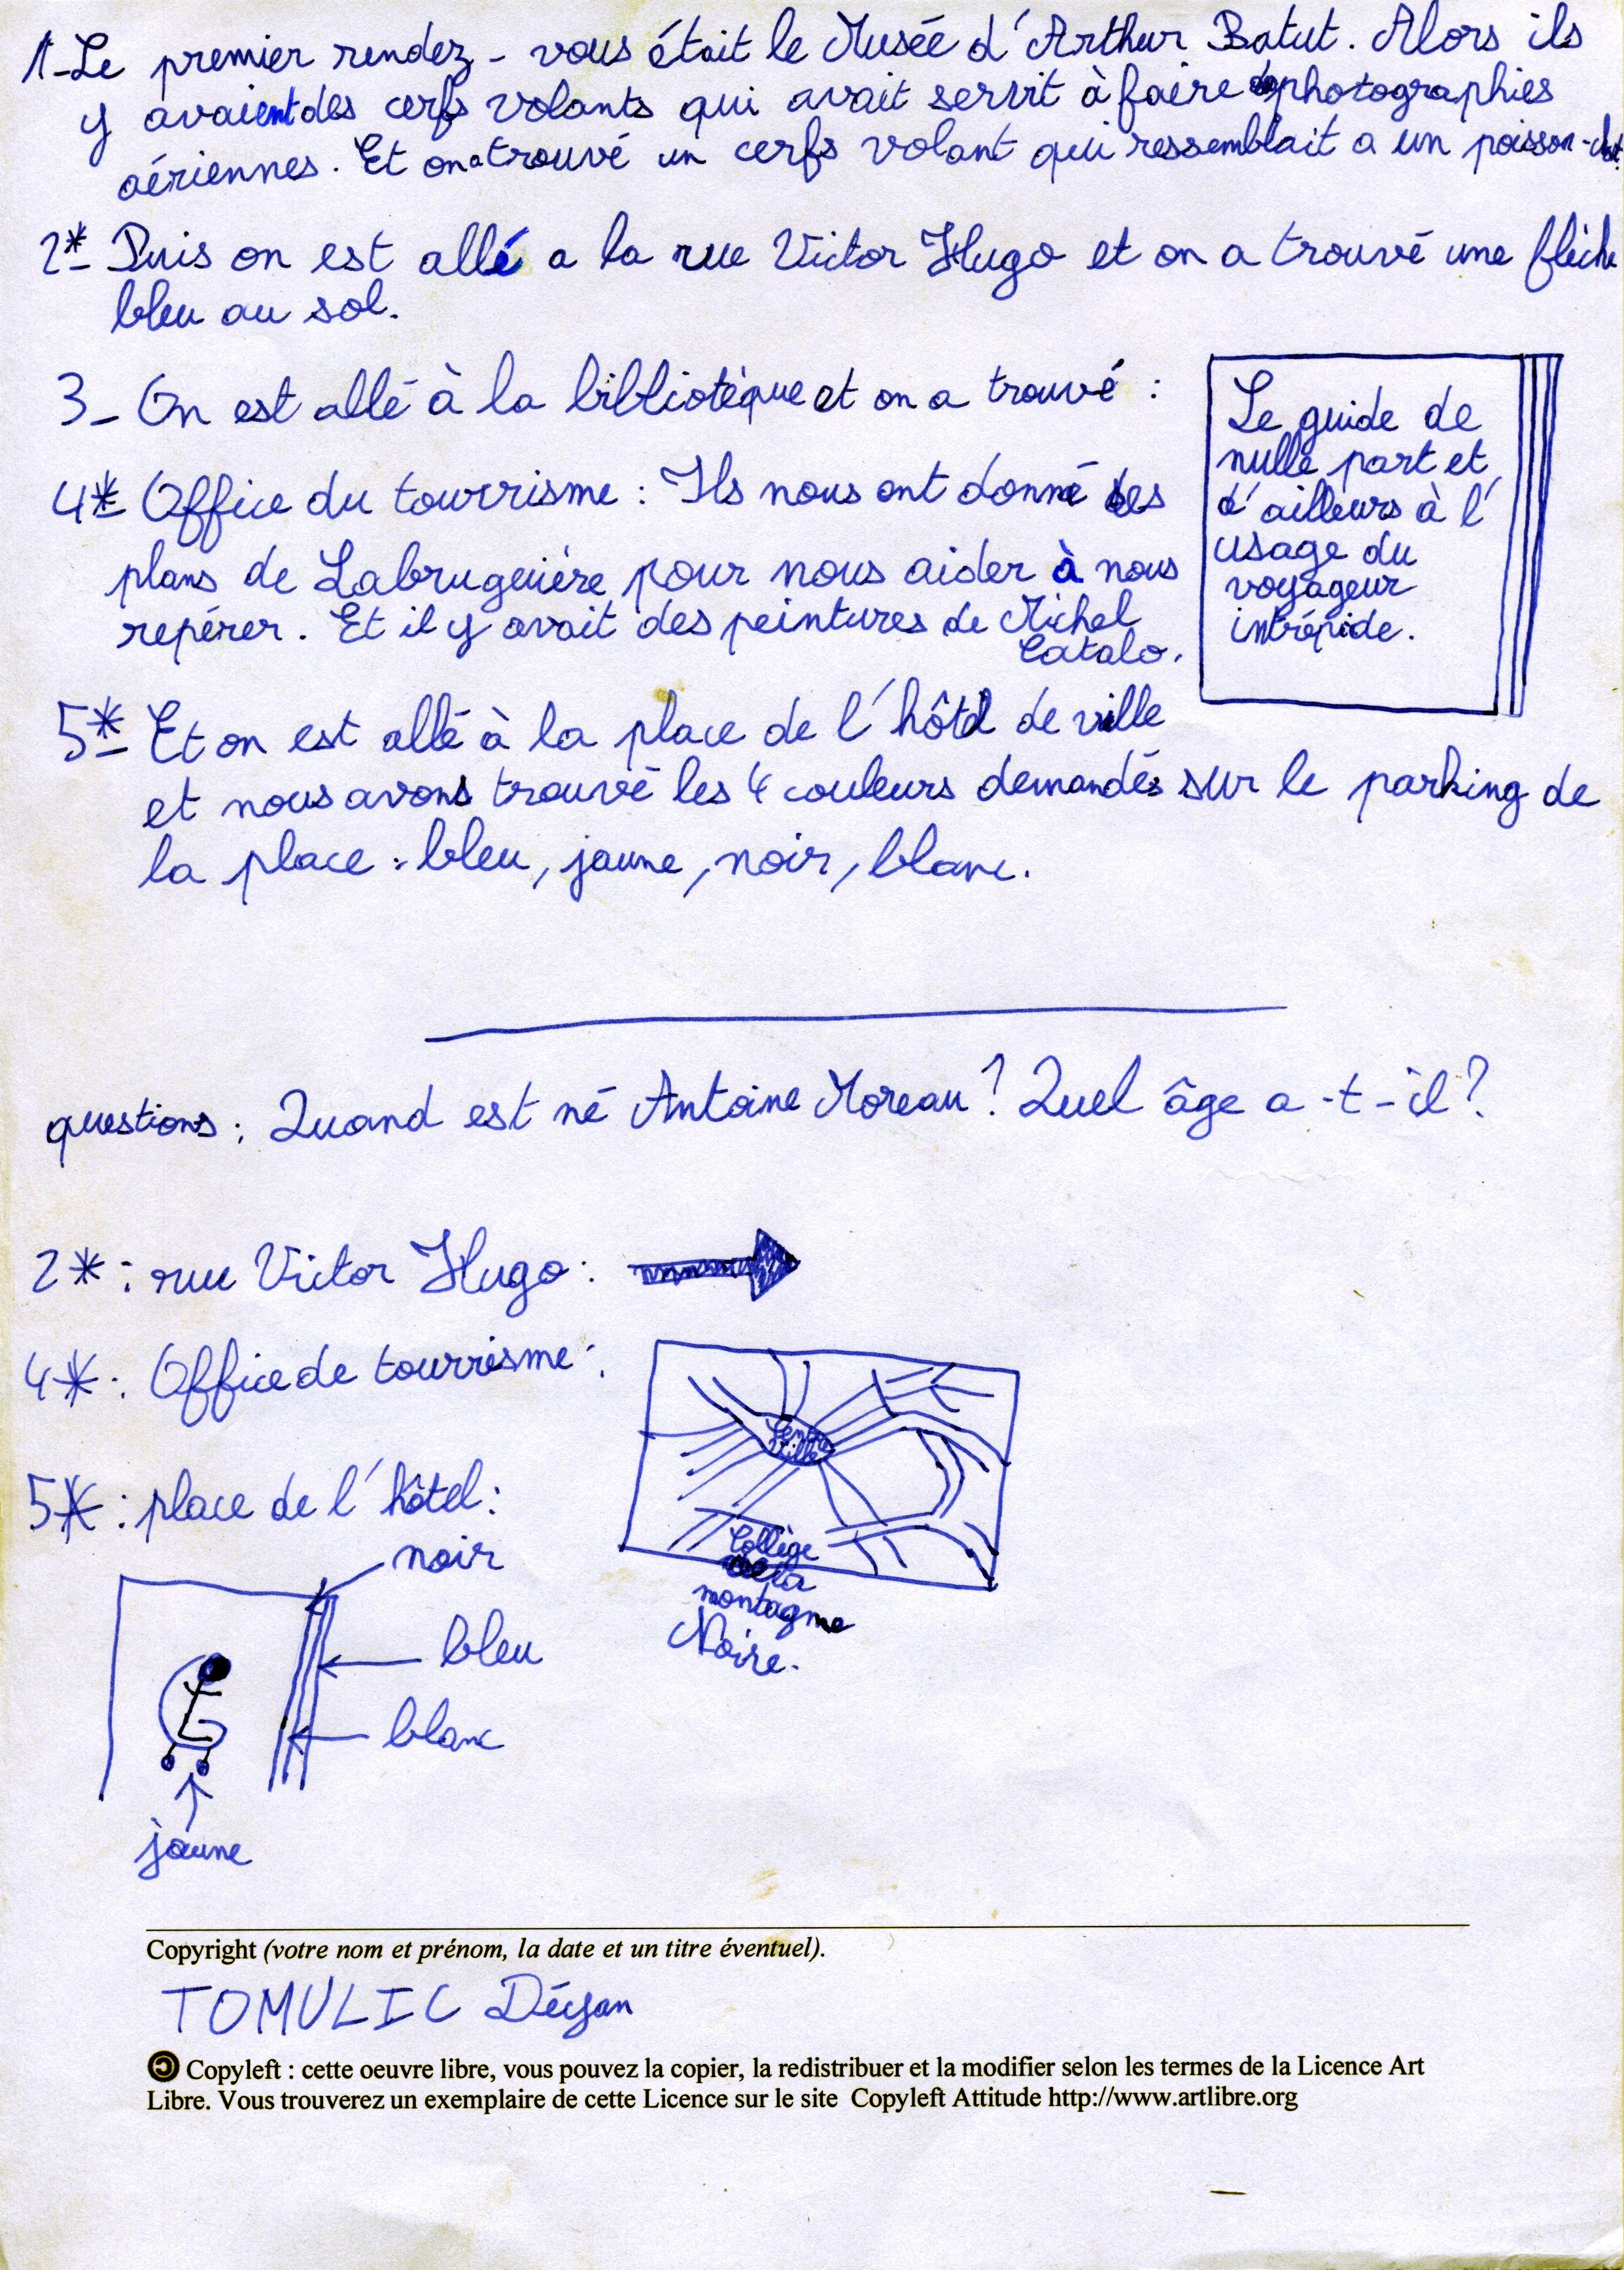 1-Le premier rendez-vous était le Musée d'Arthur Batut. Alors ils
y avaient des cerfs volants qui avait servit à faire des photographies
aériennes. Et on a trouvé un cerfs volant qui ressemblait a un poisson-chat.
2*- Puis on est allé a la rue Victor Hugo et on a trouvé une flèche
bleu au sol.
3- On est allé à la bibliotèque et on a trouvé :
Le guide de
nulle part et
d'ailleurs à l'
usage du
voyageur
intrépide.
4*- Office du tourrisme : Ils nous ont donné des
plans de Labruguière pour nous aider à nous
repérer. Et il y avait des peintures de Michel
Catalo.
5*- Et on est allé à la place de l'hôtel de ville
et nous avons trouvé les 4 couleurs demandés sur le parking de
la place : bleu, jaune, noir, blanc.
questions : Quand est né Antoine Moreau ? Quel âge a-t-il ?
2* : rue Victor Hugo :
4* : Office de tourrisme :
Centre
Ville
Collège
de la
montagne
Noire.
5* : place de l'hôtel :
noir
bleu
blanc
jaune
Copyright (votre nom et prénom, la date et un titre éventuel).
TOMULIC Déyan
Copyleft : cette oeuvre libre, vous pouvez la copier, la redistribuer et la modifier selon les termes de la Licence Art
Libre. Vous trouverez un exemplaire de cette Licence sur le site Copyleft Attitude http://www.artlibre.org